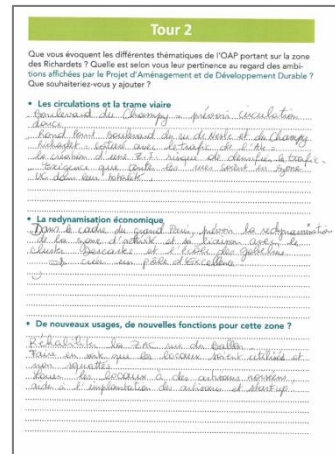 Tour 2
Que vous évoquent les différentes thématiques de l'OAP portant sur la zone
des Richardets ? Quelle est selon vous leur pertinence au regard des ambi-
tions affichées par le Projet d'Aménagement et de Développement Durable ?
Que souhaiteriez-vous y ajouter ?
• Les circulations et la trame viaire
Boulevard du Champy = prévoir circulation
douce
Rond Point boulevard du ru de Nesle et du Champy
Richardet - saturé avec le trafic de l'A4 =
la création d'une Z.I. risque de densifier le trafic -
Exigence que toutes les rues soient en zone
dans leur totalité.
• La redynamisation économique
Dans le cadre du grand Paris, prévoir la redynamisation
de la zone d'activité et sa liaison avec le
cluster Descartes et l'école des gobelins
créer un pôle d'Excellence
• De nouveaux usages, de nouvelles fonctions pour cette zone ?
Réhabiliter la ZAC rue du Ballon
Faire en sorte que les locaux soient utilisés et
non squattés
Louer les locaux à des artisans
aide à l'implantation des artisans et start up